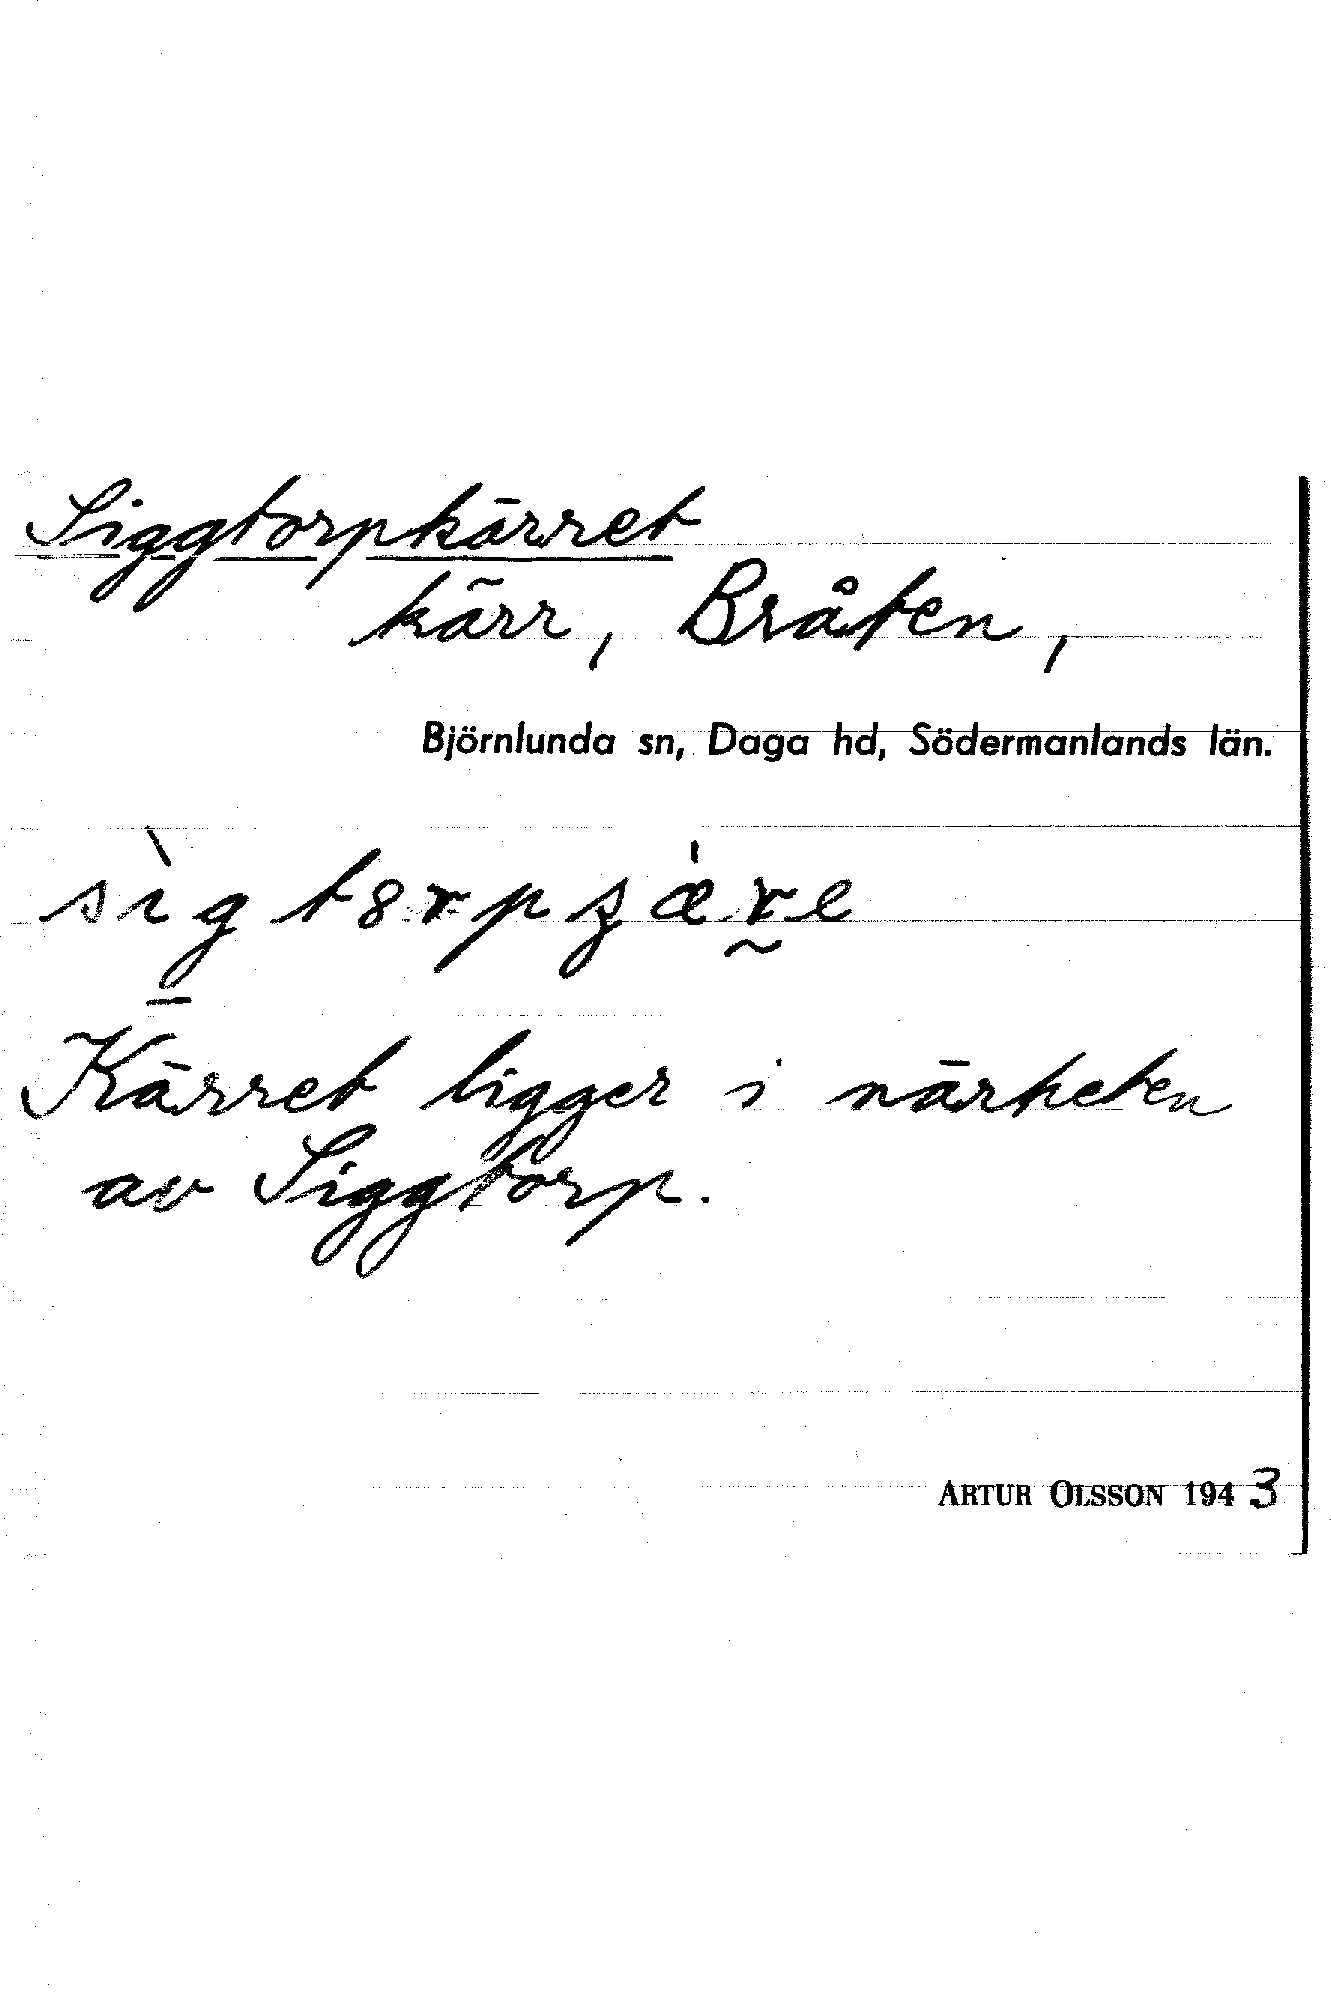 Siggtorpkärret
kärr, Bråten,
Björnlunda sn, Daga hd, Södermanlands län.
Kärret ligger i närheten
av Siggtorp.
ARTUR OLSSON 1943